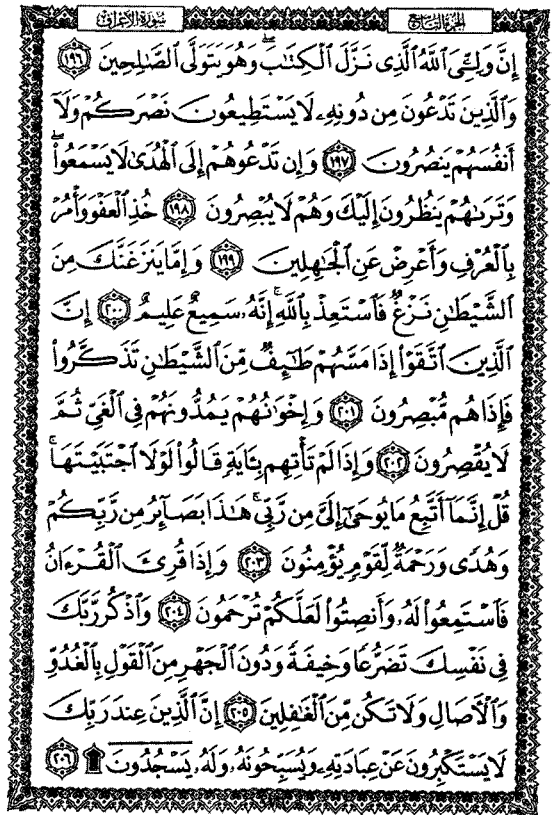 سُورَةُ الأَعْرَافِ الجُزْءُ التَّاسِعُ
إِنَّ وَلِـِّۧىَ ٱللَّهُ ٱلَّذِى نَزَّلَ ٱلْكِتَـٰبَۖ وَهُوَ يَتَوَلَّى ٱلصَّـٰلِحِينَ ١٩٦
وَٱلَّذِينَ تَدْعُونَ مِن دُونِهِۦ لَا يَسْتَطِيعُونَ نَصْرَكُمْ وَلَآ
أَنفُسَهُمْ يَنصُرُونَ ١٩٧ وَإِن تَدْعُوهُمْ إِلَى ٱلْهُدَىٰ لَا يَسْمَعُوا۟ۖ
وَتَرَىٰهُمْ يَنظُرُونَ إِلَيْكَ وَهُمْ لَا يُبْصِرُونَ ١٩٨ خُذِ ٱلْعَفْوَ وَأْمُرْ
بِٱلْعُرْفِ وَأَعْرِضْ عَنِ ٱلْجَـٰهِلِينَ ١٩٩ وَإِمَّا يَنزَغَنَّكَ مِنَ
ٱلشَّيْطَـٰنِ نَزْغٌ فَٱسْتَعِذْ بِٱللَّهِۚ إِنَّهُۥ سَمِيعٌ عَلِيمٌ ٢٠٠ إِنَّ
ٱلَّذِينَ ٱتَّقَوْا۟ إِذَا مَسَّهُمْ طَـٰٓئِفٌ مِّنَ ٱلشَّيْطَـٰنِ تَذَكَّرُوا۟
فَإِذَا هُم مُّبْصِرُونَ ٢٠١ وَإِخْوَٰنُهُمْ يَمُدُّونَهُمْ فِى ٱلْغَىِّ ثُمَّ
لَا يُقْصِرُونَ ٢٠٢ وَإِذَا لَمْ تَأْتِهِم بِـَٔايَةٍ قَالُوا۟ لَوْلَا ٱجْتَبَيْتَهَاۚ
قُلْ إِنَّمَآ أَتَّبِعُ مَا يُوحَىٰٓ إِلَىَّ مِن رَّبِّىۚ هَـٰذَا بَصَآئِرُ مِن رَّبِّكُمْ
وَهُدًى وَرَحْمَةٌ لِّقَوْمٍ يُؤْمِنُونَ ٢٠٣ وَإِذَا قُرِئَ ٱلْقُرْءَانُ
فَٱسْتَمِعُوا۟ لَهُۥ وَأَنصِتُوا۟ لَعَلَّكُمْ تُرْحَمُونَ ٢٠٤ وَٱذْكُر رَّبَّكَ
فِى نَفْسِكَ تَضَرُّعًا وَخِيفَةً وَدُونَ ٱلْجَهْرِ مِنَ ٱلْقَوْلِ بِٱلْغُدُوِّ
وَٱلْـَٔاصَالِ وَلَا تَكُن مِّنَ ٱلْغَـٰفِلِينَ ٢٠٥ إِنَّ ٱلَّذِينَ عِندَ رَبِّكَ
لَا يَسْتَكْبِرُونَ عَنْ عِبَادَتِهِۦ وَيُسَبِّحُونَهُۥ وَلَهُۥ يَسْجُدُونَ ۩ ٢٠٦